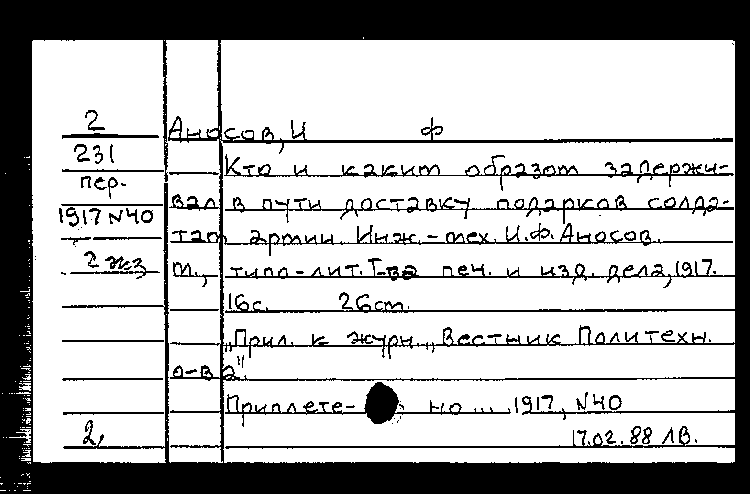 2
Аносов, И Ф
231
Кто и каким образом задержи-
пер.
вал в пути доставку подарков солда-
1917 N40
там армии. Инж.-мех. И.Ф. Аносов.
2 экз
М., типо-лит. Т-ва печ. и изд. дела, 1917.
16с. 26см.
„Прил. к журн. „Вестник Политехн.
о-ва".
Приплете- но ... 1917, N40
2,
17.02.88 ЛВ.